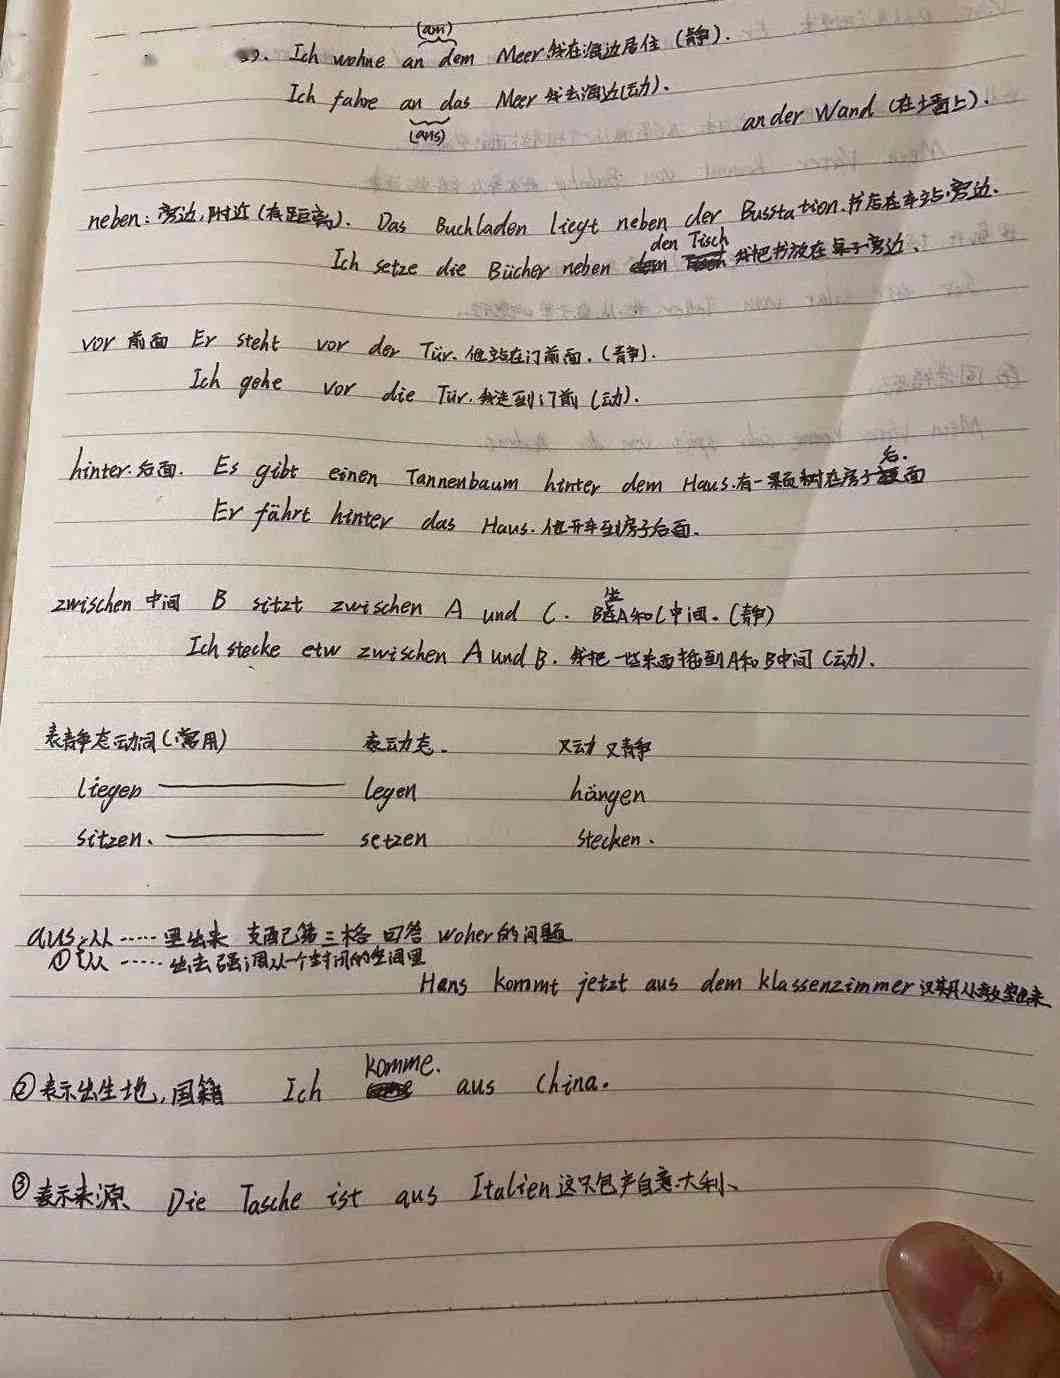 (am)
Ich wohne an dem Meer 我在海边居住 (静).
Ich fahre an das Meer 我去海边(动).
(ans)
an der Wand (在墙上).
neben: 旁边,附近 (有距离). Das Buchladen liegt neben der Busstation. 书店在车站旁边.
den Tisch
Ich setze die Bücher neben 我把书放在桌子旁边.
vor 前面 Er steht vor der Tür. 他站在门前面. (静).
Ich gehe vor die Tür. 我走到门前 (动).
后.
hinter. 后面. Es gibt einen Tannenbaum hinter dem Haus. 有一棵树在房子面
Er fährt hinter das Haus. 他开车到房子后面.
坐
zwischen 中间 B sitzt zwischen A und C. B在A和C中间. (静)
Ich stecke etw zwischen A und B. 我把一些东西插到A和B中间 (动).
表静态动词 (常用) 表动态. 又动又静
liegen —— legen hängen
sitzen. —— setzen stecken.
aus: 从 …… 里出来 支配第三格 回答 woher 的问题
①从 …… 出去 强调从一个封闭的空间里
Hans kommt jetzt aus dem Klassenzimmer 汉斯从教室出来
komme.
②表示出生地, 国籍 Ich aus China.
③表示来源. Die Tasche ist aus Italien 这只包产自意大利.